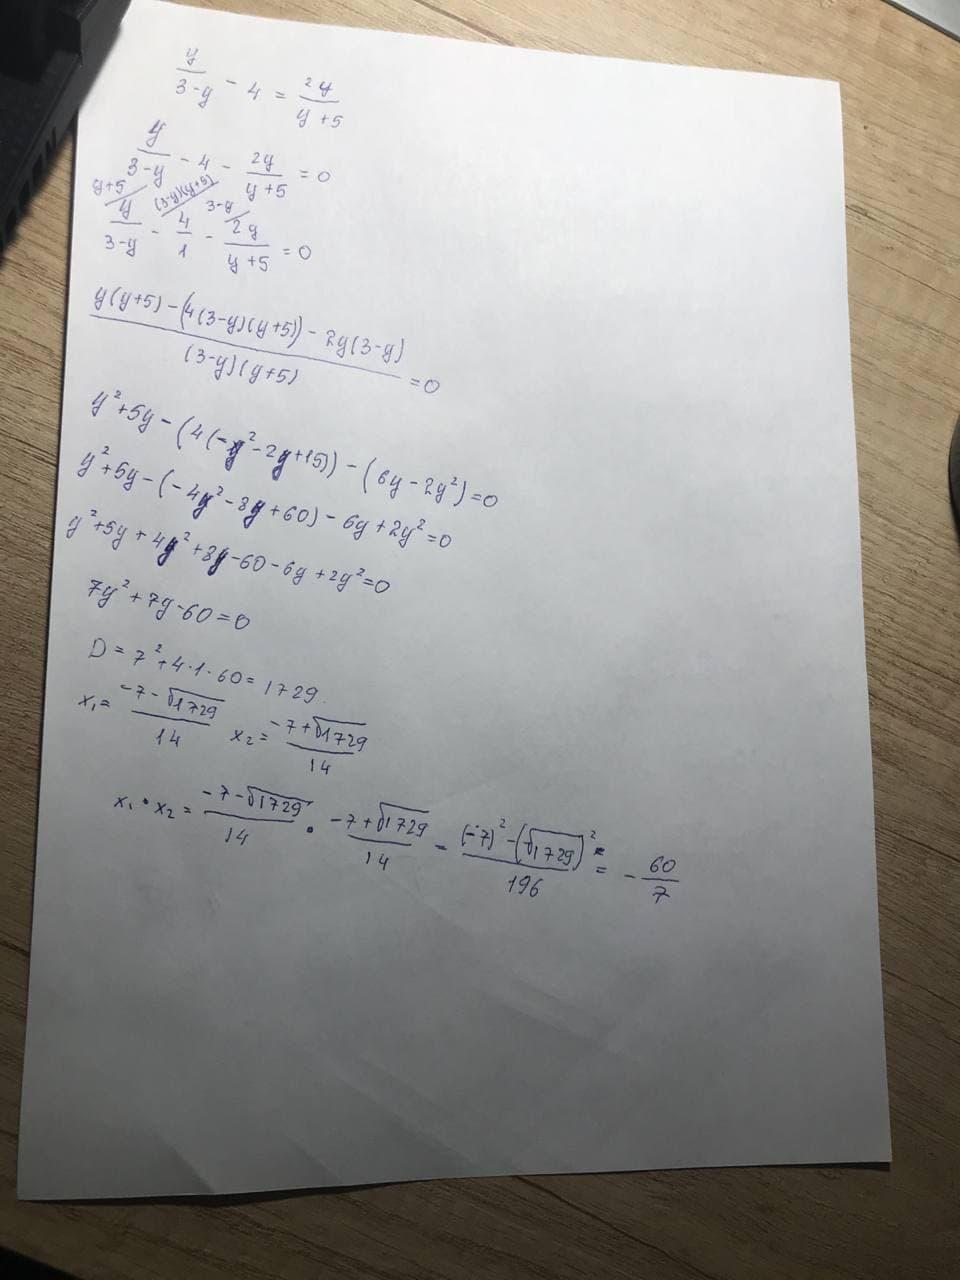 y/(3-y) - 4 = 2y/(y+5)
y/(3-y) - 4 - 2y/(y+5) = 0
y+5 (3-y)(y+5) 3-y
y/(3-y) - 4/1 - 2y/(y+5) = 0
(y(y+5) - (4(3-y)(y+5)) - 2y(3-y))/((3-y)(y+5)) = 0
y²+5y - (4(-y²-2y+15)) - (6y-2y²) = 0
y²+5y - (-4y²-8y+60) - 6y+2y² = 0
y²+5y+4y²+8y-60-6y+2y² = 0
7y²+7y-60=0
D = 7²+4·1·60 = 1729.
x₁ = (-7-√1729)/14 x₂ = (-7+√1729)/14
x₁ · x₂ = (-7-√1729)/14 · (-7+√1729)/14 = ((-7)²-(√1729)²)/196 = -60/7